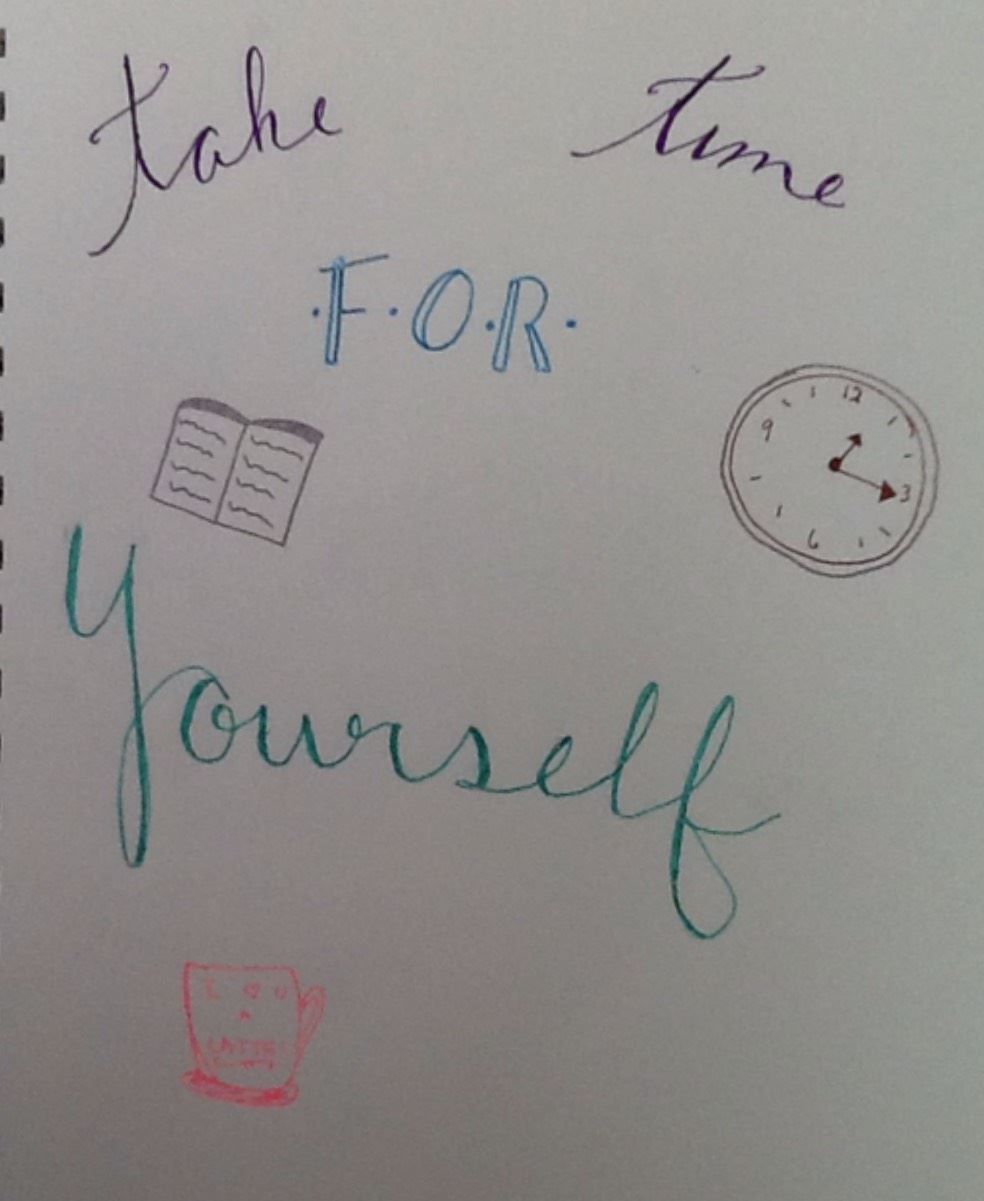 take time
·F·O·R·
12
9
3
6
yourself
I ♡ U
A
LATTE!